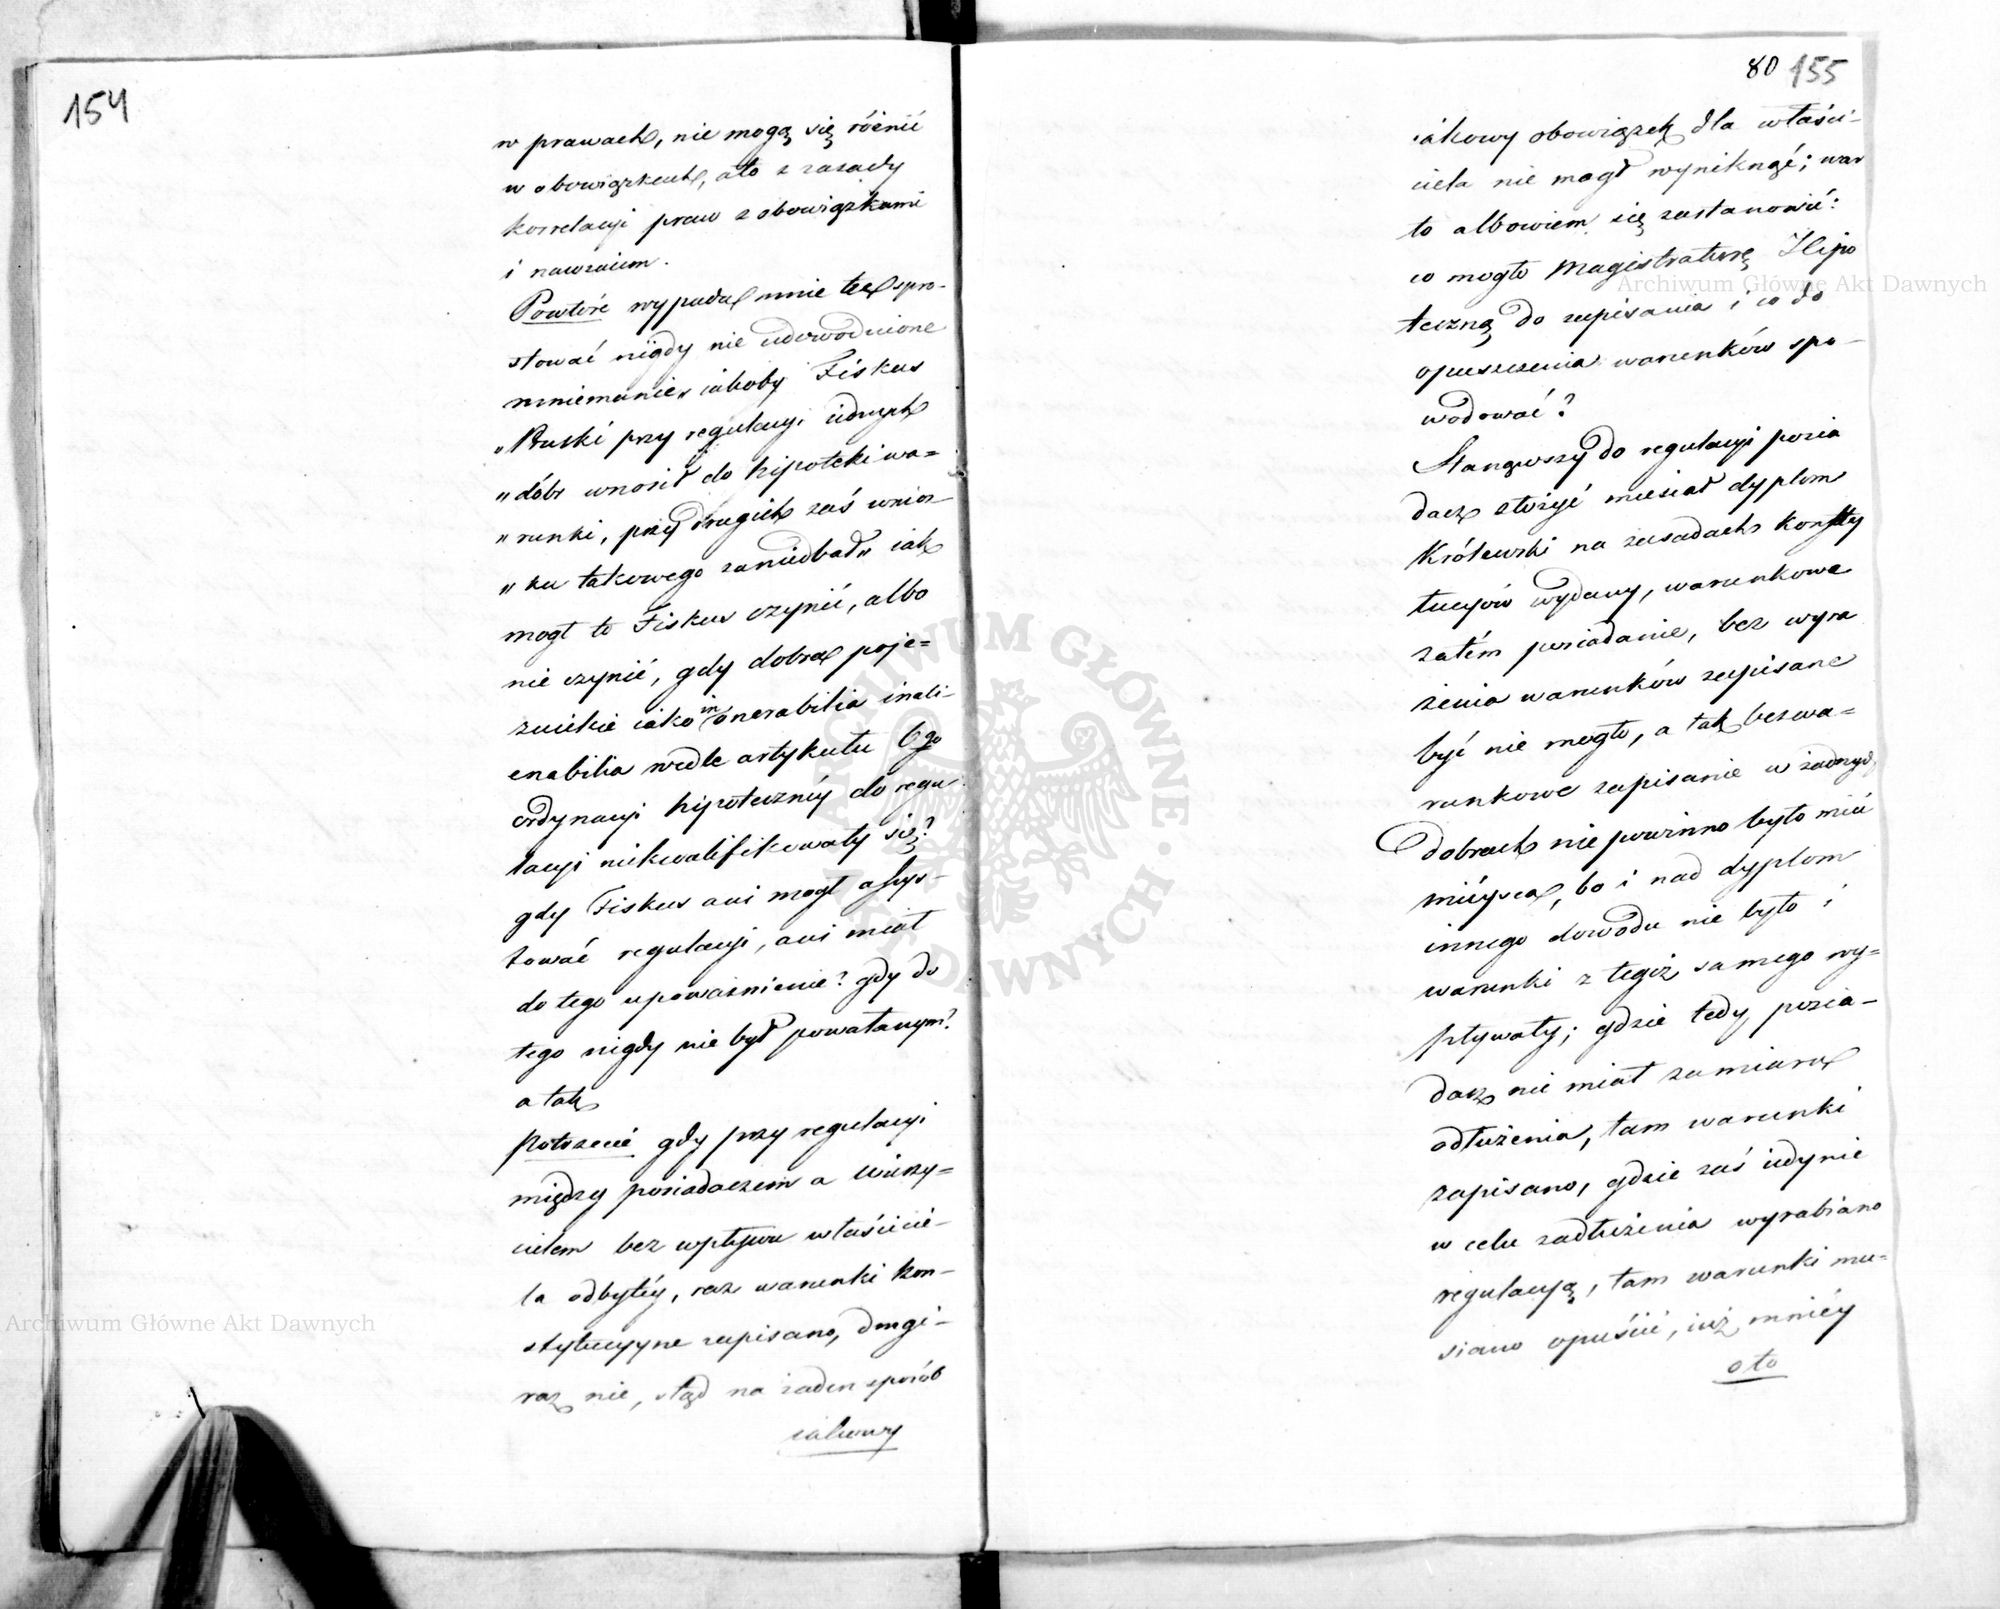 154
w prawach, nie mogą się różnić
w obowiązkach, a to z zasady
korrelacyi praw z obowiązkami
i nawzaiem.
Powtóre wypada mnie też spro-
stować nigdy nie udowodnione
mniemanie„ iakoby Fiskus
„Pruski przy regulacyi iednych
„dóbr wnosił do hipoteki wa=
„runki, przy drugich zaś wnios-
„ku takowego zaniedbał„ iak
mogł to Fiskus czynić, albo
nie czynić, gdy dobra poje=
zuickie iako inonerabilia inali-
enabilia wedle artykułu 6go
ordynacyi hipoteczney do regu
lacyi niekwalifikowały się?
gdy Fiskus ani mogł assys-
tować regulacyi, ani miał
do tego upoważnienie? gdy do
tego nigdy nie był powołanym?
a tak
Potrzecie gdy przy regulacyi
między posiadaczem a wierzy=
cielem bez wpływu właścicie-
la odbytéy, raz warunki kon-
stytucyyne zapisano, drugi-
raz nie, stąd na żaden sposób
iakowy
80 155
iakowy obowiązek dla właści-
ciela nie mogł wyniknąć; war
to albowiem się zastanowić:
co mogło Magistraturę Hipo
teczną do zapisania i co do
opuszczenia warunków spo-
wodować?
Stanąwszy do regulacyi posia
dacz złożyć musiał dyplom
Królewski na zasadach konsty
tucyów wydany, warunkowe
zatém posiadanie, bez wyra
żenia warunków zapisane
być nie mogło, a tak bezwa=
runkowe zapisanie w żadnych
dobrach nie powinno było mieć
mieysca, bo i nad dyplom
innego dowodu nie było i
warunki z tegiż samego wy=
pływały; gdzie tedy posia-
dacz nie miał zamiaru
odłużenia, tam warunki
zapisano, gdzie zaś iedynie
w celu zadłużenia wyrabiano
regulacyą, tam warunki mu=
siano opuścić, iuż mniéy
o to
Archiwum Główne Akt Dawnych
Archiwum Główne Akt Dawnych
ARCHIWUM GŁÓWNE AKT DAWNYCH